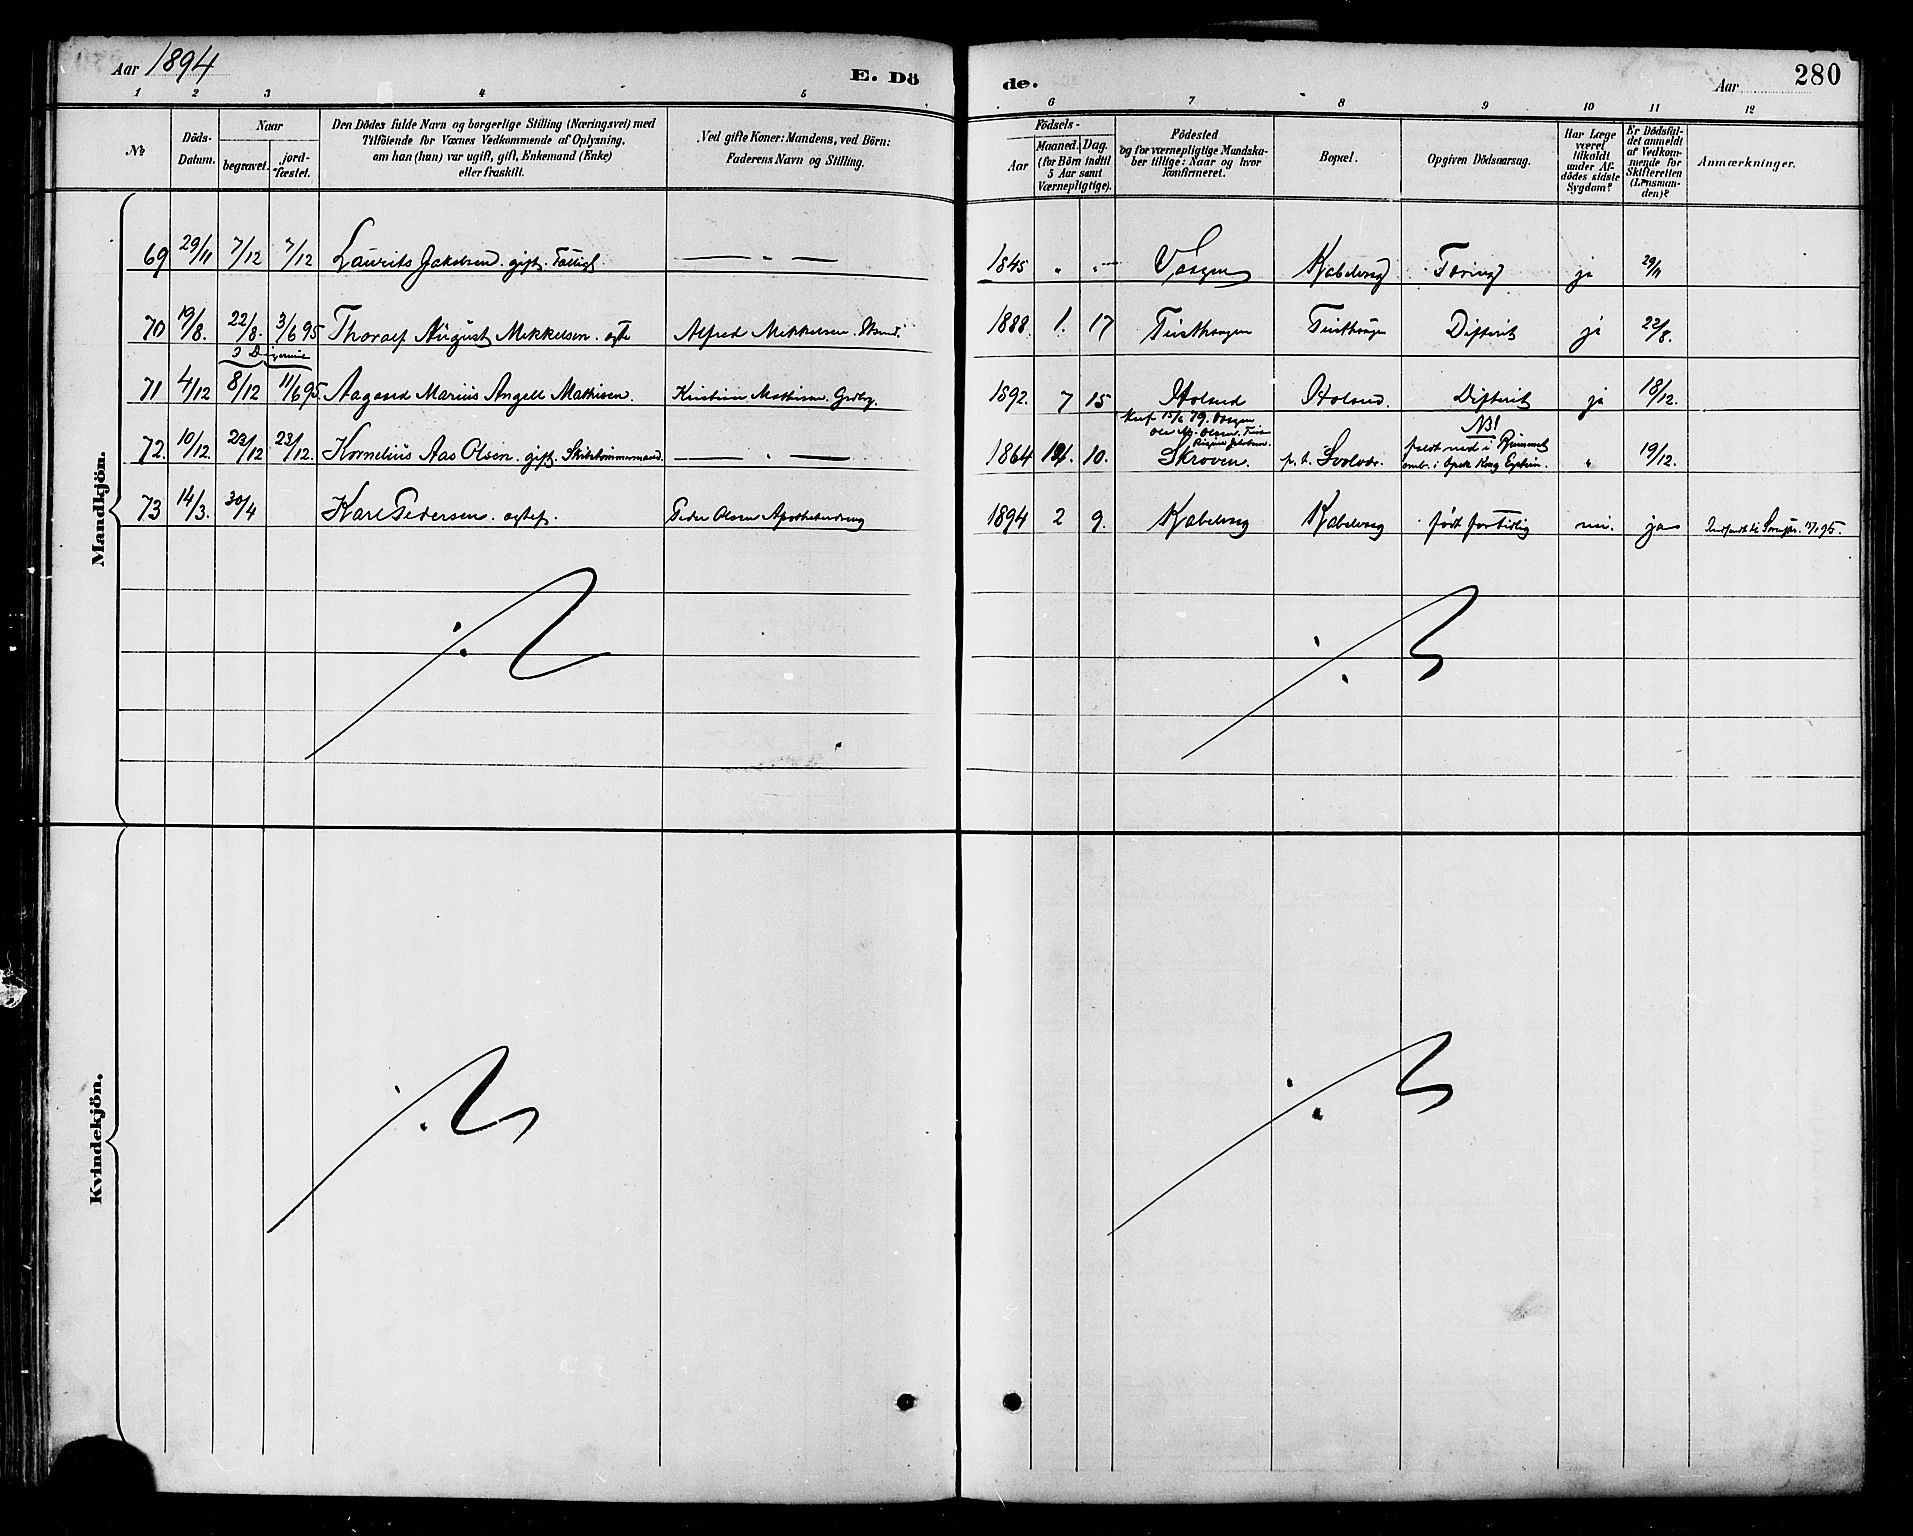 Aar 1894
E. Dö
de.
Aar
280
1 2 3 4 5
6 7 8 9 10 11 12
№
Döds-Datum.
Naar
begravet.
jord-fæstet.
Den Dödes fulde Navn og borgerlige Stilling (Næringsvei) med
Tilföiende for Voxnes Vedkommende af Oplysning,
om han (hun) var ugift, gift, Enkemand (Enke)
eller fraskilt.
Ved gifte Koner: Mandens, ved Börn:
Faderens Navn og Stilling.
Födsels-
Aar
Maaned. Dag.
(for Börn indtil
5 Aar samt
Værnepligtige).
Födested
og for værnepligtige Mandska-
ber tillige: Naar og hvor
konfirmeret.
Bopæl.
Opgiven Dödsaarsag.
Har Læge
været
tilkaldt
under Af-
dödes sidste
Sygdom?
Er Dödsfal-
det anmeldt
af Vedkom-
mende for
Skifteretten
(Lensman-
den)?
Anmærkninger.
Mandkjön.
69 29/11 7/12 7/12 Laurits Jakobsen. gift. Fattigl. — " — 1845 " " Vaagen Kabelvaag Tæring ja 29/11
70 19/8. 22/8. 3/6 95 Thoralf August Mekkelsen. ægte Alfred Mekkelsen. 1888 1. 17 Difterit ja 22/8.
71 4/12 8/12 11/6 95. Aagaard Marius Angell Mathisen. Kristian Mathisen. Grdbr. 1892. 7 15 Holand Holand. Difterit ja 18/12.
Konf. 15/6 79. Vaagen
Ole Olsen
NB!
72. 10/12. 23/12 23/12. Kornelius Aas Olsen. gift. Skibstömmermand. — " — 1864 10. Skroven. p. t. Svolvær. faldt ned i Rummet
omb. i Kong Eystein. " 19/12.
73 14/3. 30/4 Karl Pedersen. ægtef. Peder Olsen Apothekerdreng 1894 2 9. Kabelvaag Kabelvaag født for tidlig nei. ja
Kvindekjön.